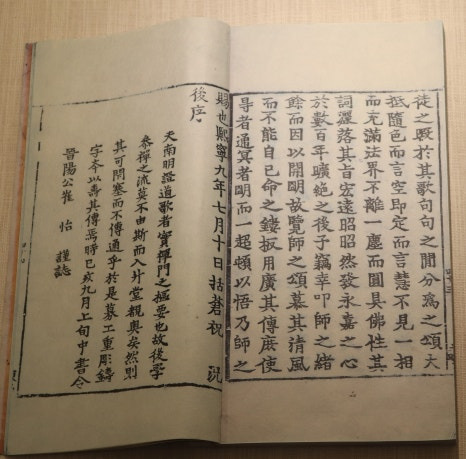 徒之暇於其歌句句之間分爲之頌大
抵隨色而言空即定而言慧不見一相
而充滿法界不離一塵而圓具佛性其
詞灑落其旨宏遠昭昭然發永嘉之心
於數百年曠絕之後予竊幸叩師之緒
餘而因以開明故覽師之頌慕其清風
而不能自已命之鏤板用廣其傳庶使
尋者通冥者明而一超頓以悟乃師之
賜也熙寧九年七月十日括蒼祝 況
後序
夫南明證道歌者實禪門之樞要也故後學
叅禪之流莫不由斯而入升堂覩奧矣然則
其可閉塞而不傳通乎於是募工重彫鑄
字本以壽其傳焉時己亥九月上旬中書令
晉陽公崔 怡 謹誌